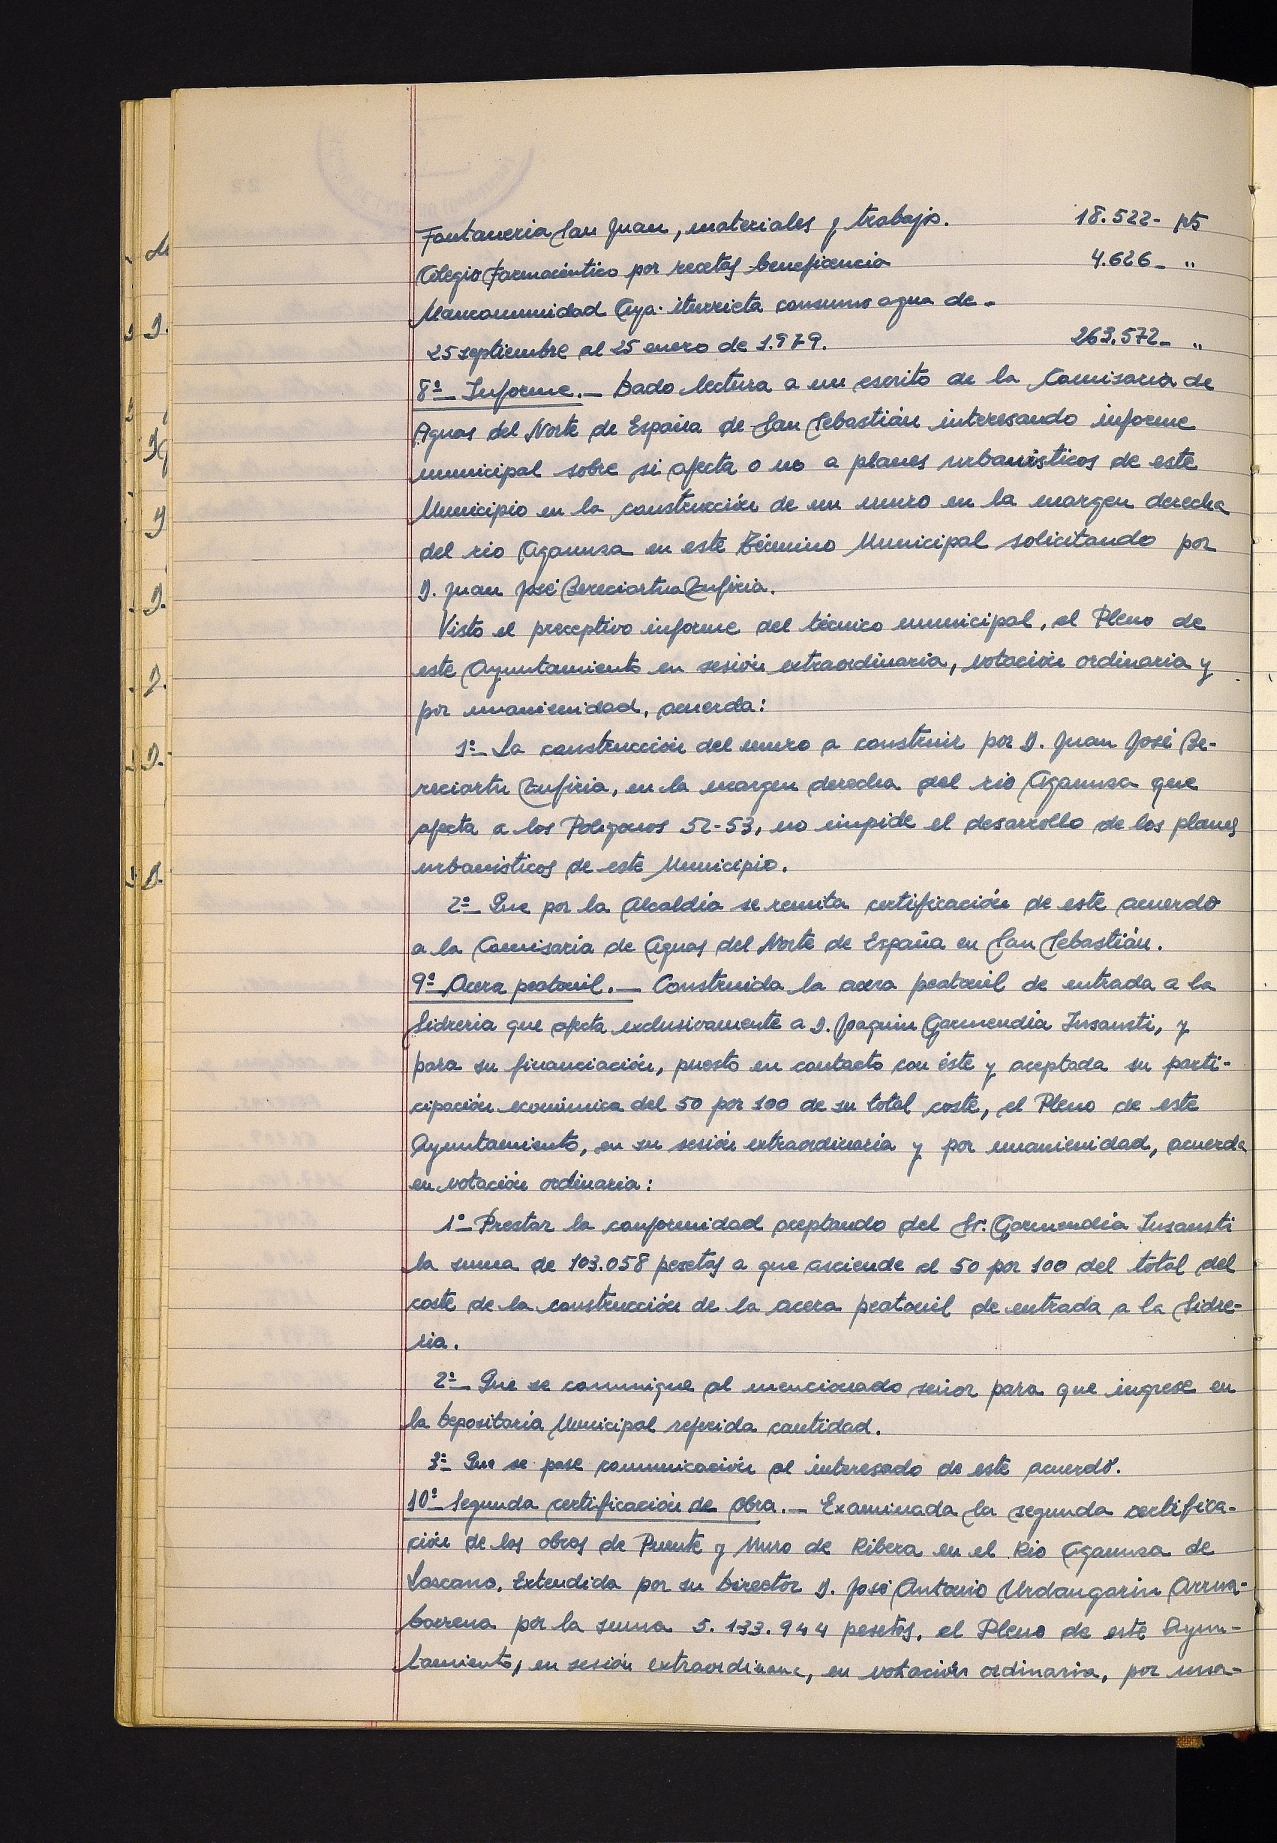 Fontaneria San Juan, materiales y trabajo. 18.522- pts
Colegio Farmacéutico por recetas beneficencia 4.626- "
Mancomunidad Aya-iturrieta consumo agua de -
25 septiembre al 25 enero de 1.979. 263.572- "
8º- Informe.- Dado lectura a un escrito de la Comisaria de
Aguas del Norte de España de San Sebastián interesando informe
municipal sobre si afecta o no a planes urbanísticos de este
Municipio en la construcción de un muro en la margen derecha
del rio Agaunza en este Término Municipal solicitando por
D. Juan José Bereciartua Zufiria.
Visto el preceptivo informe del técnico municipal, el Pleno de
este Ayuntamiento en sesión extraordinaria, votación ordinaria y
por unanimidad, acuerda:
1º- La construcción del muro a construir por D. Juan José Be-
reciartu Zufiria, en la margen derecha del rio Agaunza que
afecta a los Poligonos 52-53, no impide el desarrollo de los planes
urbanisticos de este Municipio.
2º- Que por la Alcaldía se remita certificación de este acuerdo
a la Comisaria de Aguas del Norte de España en San Sebastián.
9º- Acera peatonil.- Construida la acera peatonil de entrada a la
Sidreria que afecta exclusivamente a D. Joaquin Garmendia Insausti, y
para su financiación, puesto en contacto con éste y aceptada su parti-
cipación económica del 50 por 100 de su total coste, el Pleno de este
Ayuntamiento, en su sesión extraordinaria y por unanimidad, acuerda
en votación ordinaria:
1º- Prestar la conformidad aceptando del Sr. Garmendia Insausti
la suma de 103.058 pesetas a que asciende el 50 por 100 del total del
coste de la construcción de la acera peatonil de entrada a la Sidre-
ria.
2º- Que se comunique al mencionado señor para que ingrese en
la Depositaria Municipal referida cantidad.
3º- Que se pase comunicación al interesado de este acuerdo.
10º- Segunda certificación de obra.- Examinada la segunda certifica-
ción de las obras de Puente y Muro de Ribera en el Rio Agaunza de
Lazcano. Extendida por su Director D. José Antonio Urdangarin Arrua-
barrena por la suma 5.133.944 pesetas, el Pleno de este Ayun-
tamiento, en sesión extraordinaria, en votación ordinaria, por una-